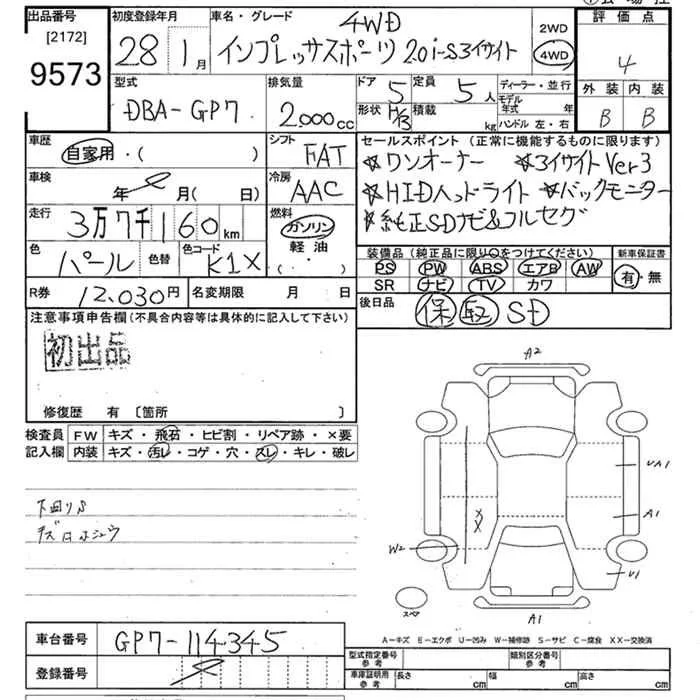 出品番号
[2172]
9573
初度登録年月
28年 1月
車名・グレード
4WD
インプレッサスポーツ 2.0i-S3イサイト
2WD
4WD
評価点
4
外装 内装
B B
型式
DBA-GP7
排気量
2,000cc
ドア 5
定員 5人
形状 H/B
積載 kg
ディーラー・並行
モデル年式 年
ハンドル 左・右
車歴
自家用・( )
シフト
FAT
車検
年 月( 日)
冷房
AAC
走行
3万7千160km
燃料
ガソリン
軽油
( ・ )
色
パール
色替
色コード
K1X
R券 12,030円
名変期限 月 日
セールスポイント(正常に機能するものに限ります)
☆ワンオーナー ☆3イサイトVer3
☆HIDヘッドライト ☆バックモニター
☆純正SDナビ&フルセグ
装備品(純正品に限り○をつけてください)
PS PW ABS エアB AW
SR ナビ TV カワ
新車保証書
有・無
後日品
保 取 SD
注意事項申告欄(不具合内容等は具体的に記入して下さい)
初出品
修復歴 有 〔箇所 〕
検査員記入欄
FW キズ・飛石・ヒビ割・リペア跡・×要
内装 キズ・汚レ・コゲ・穴・スレ・キレ・破レ
下回りS
キズ
A2
UA1
A1
XX
W2
U1
スペア
A1
A－キズ E－エクボ U－凹み W－補修跡 S－サビ C－腐食 XX－交換済
車台番号
GP7-114345
登録番号
型式指定番号
参考
類別区分番号
参考
車庫証明用
参考
長さ cm
幅 cm
高さ cm